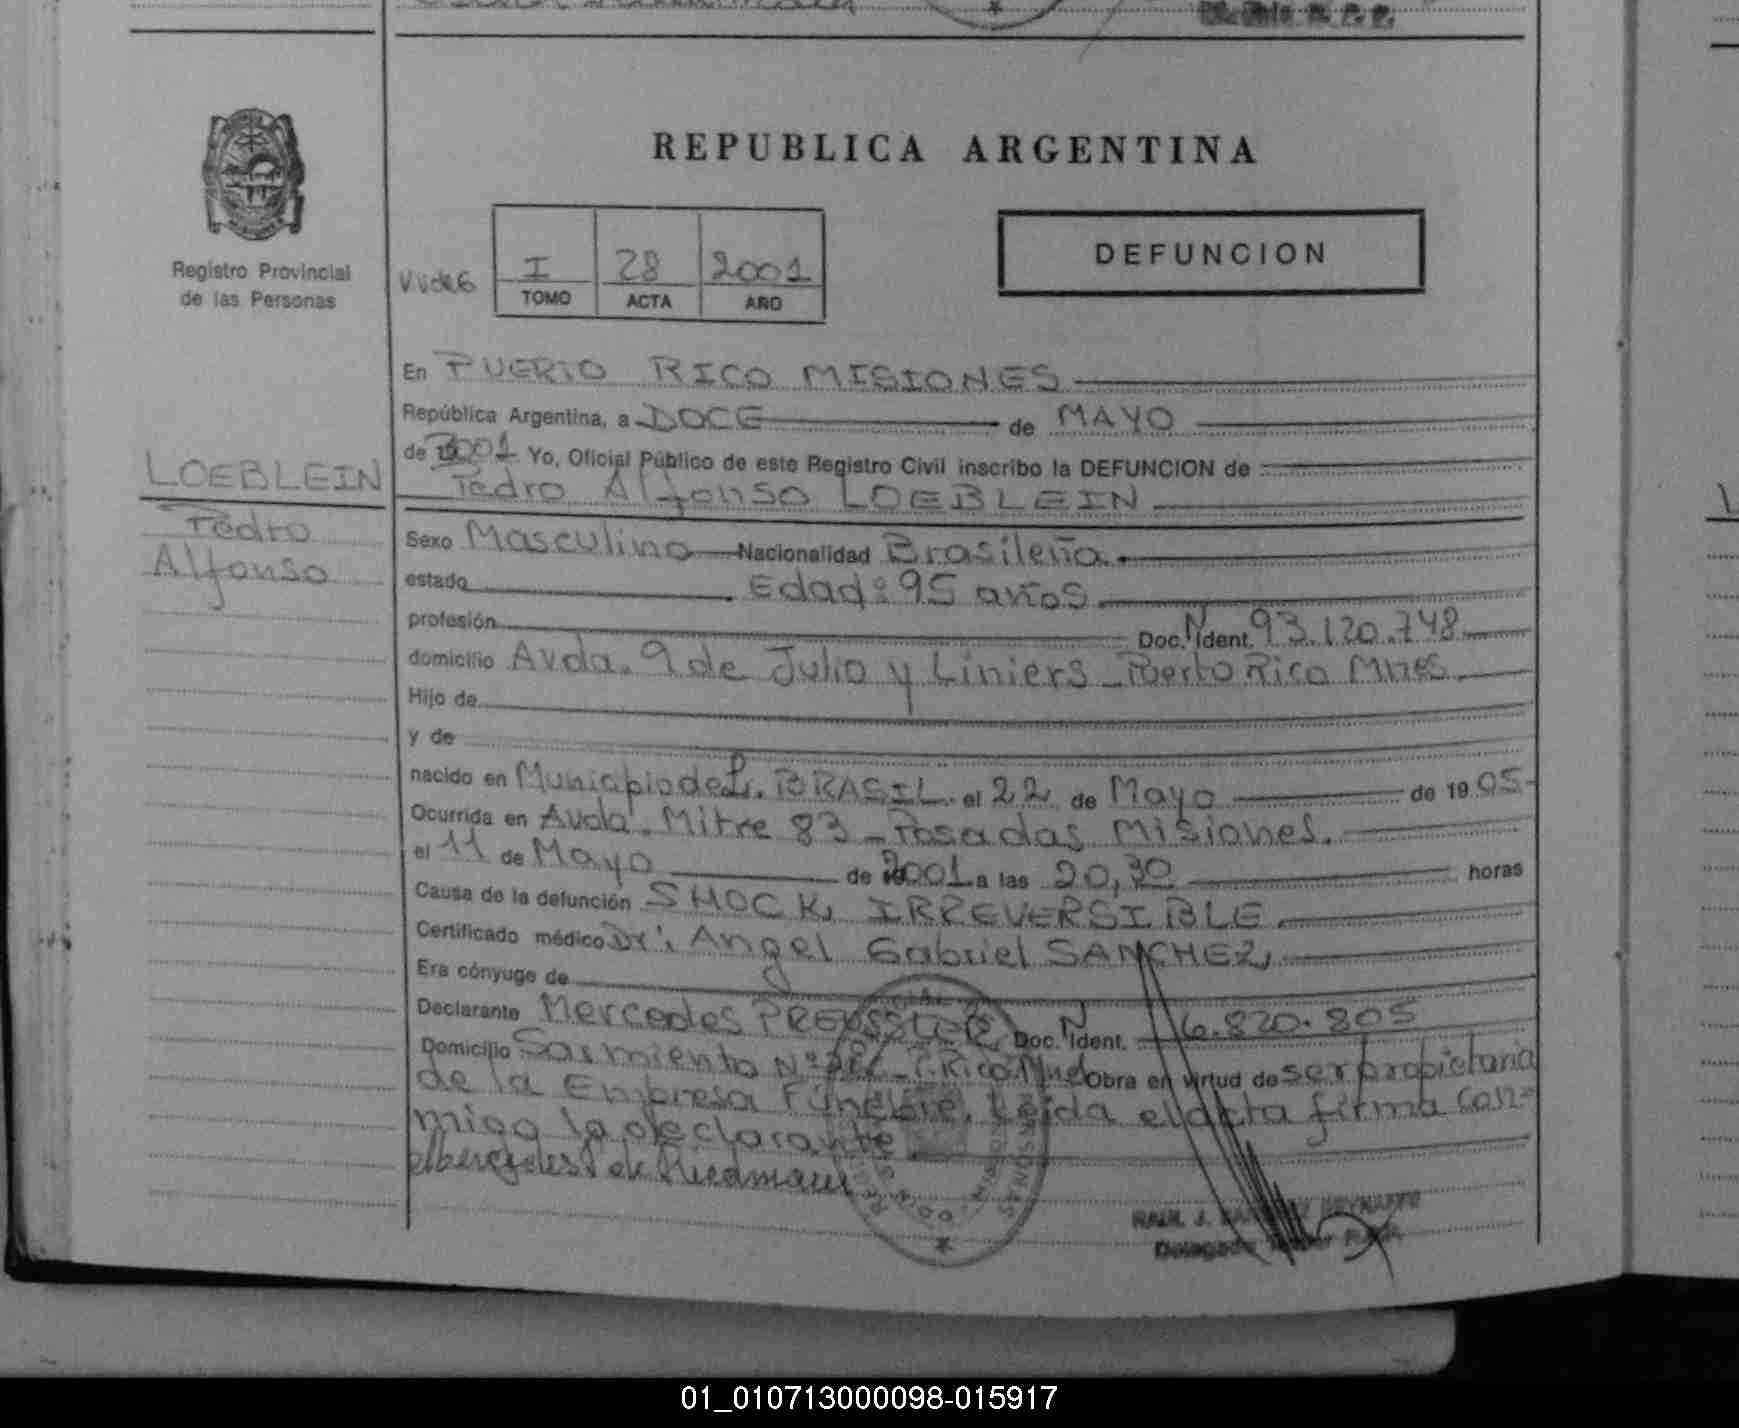 REPUBLICA ARGENTINA
Registro Provincial
de las Personas
I 28 2001
TOMO ACTA AÑO
DEFUNCION
En PUERTO RICO MISIONES
República Argentina, a DOCE de MAYO
de 2001 Yo, Oficial Público de este Registro Civil inscribo la DEFUNCION de
LOEBLEIN
Pedro Alfonso LOEBLEIN
Pedro
Alfonso
Sexo Masculino Nacionalidad Brasileña.
estado Edad: 95 años
profesión Doc. Ident. 93.120.748
domicilio Avda. 9 de Julio y Liniers - Puerto Rico Mnes.
Hijo de
y de
nacido en Municipio de BRASIL el 22 de Mayo de 1905
Ocurrida en Avda. Mitre 83 - Posadas Misiones.
el 11 de Mayo de 2001 a las 20,30 horas
Causa de la defunción SHOCK IRREVERSIBLE
Certificado médico Dr. Angel Gabriel SANCHEZ
Era cónyuge de
Declarante Mercedes Doc. Ident. 6.820.805
Domicilio Sarmiento Nº P. Rico Obra en virtud de ser propietaria
de la Empresa Fúnebre. Leida el acta firma con-
migo la declarante
RAUL J.
Delegado
01_010713000098-015917